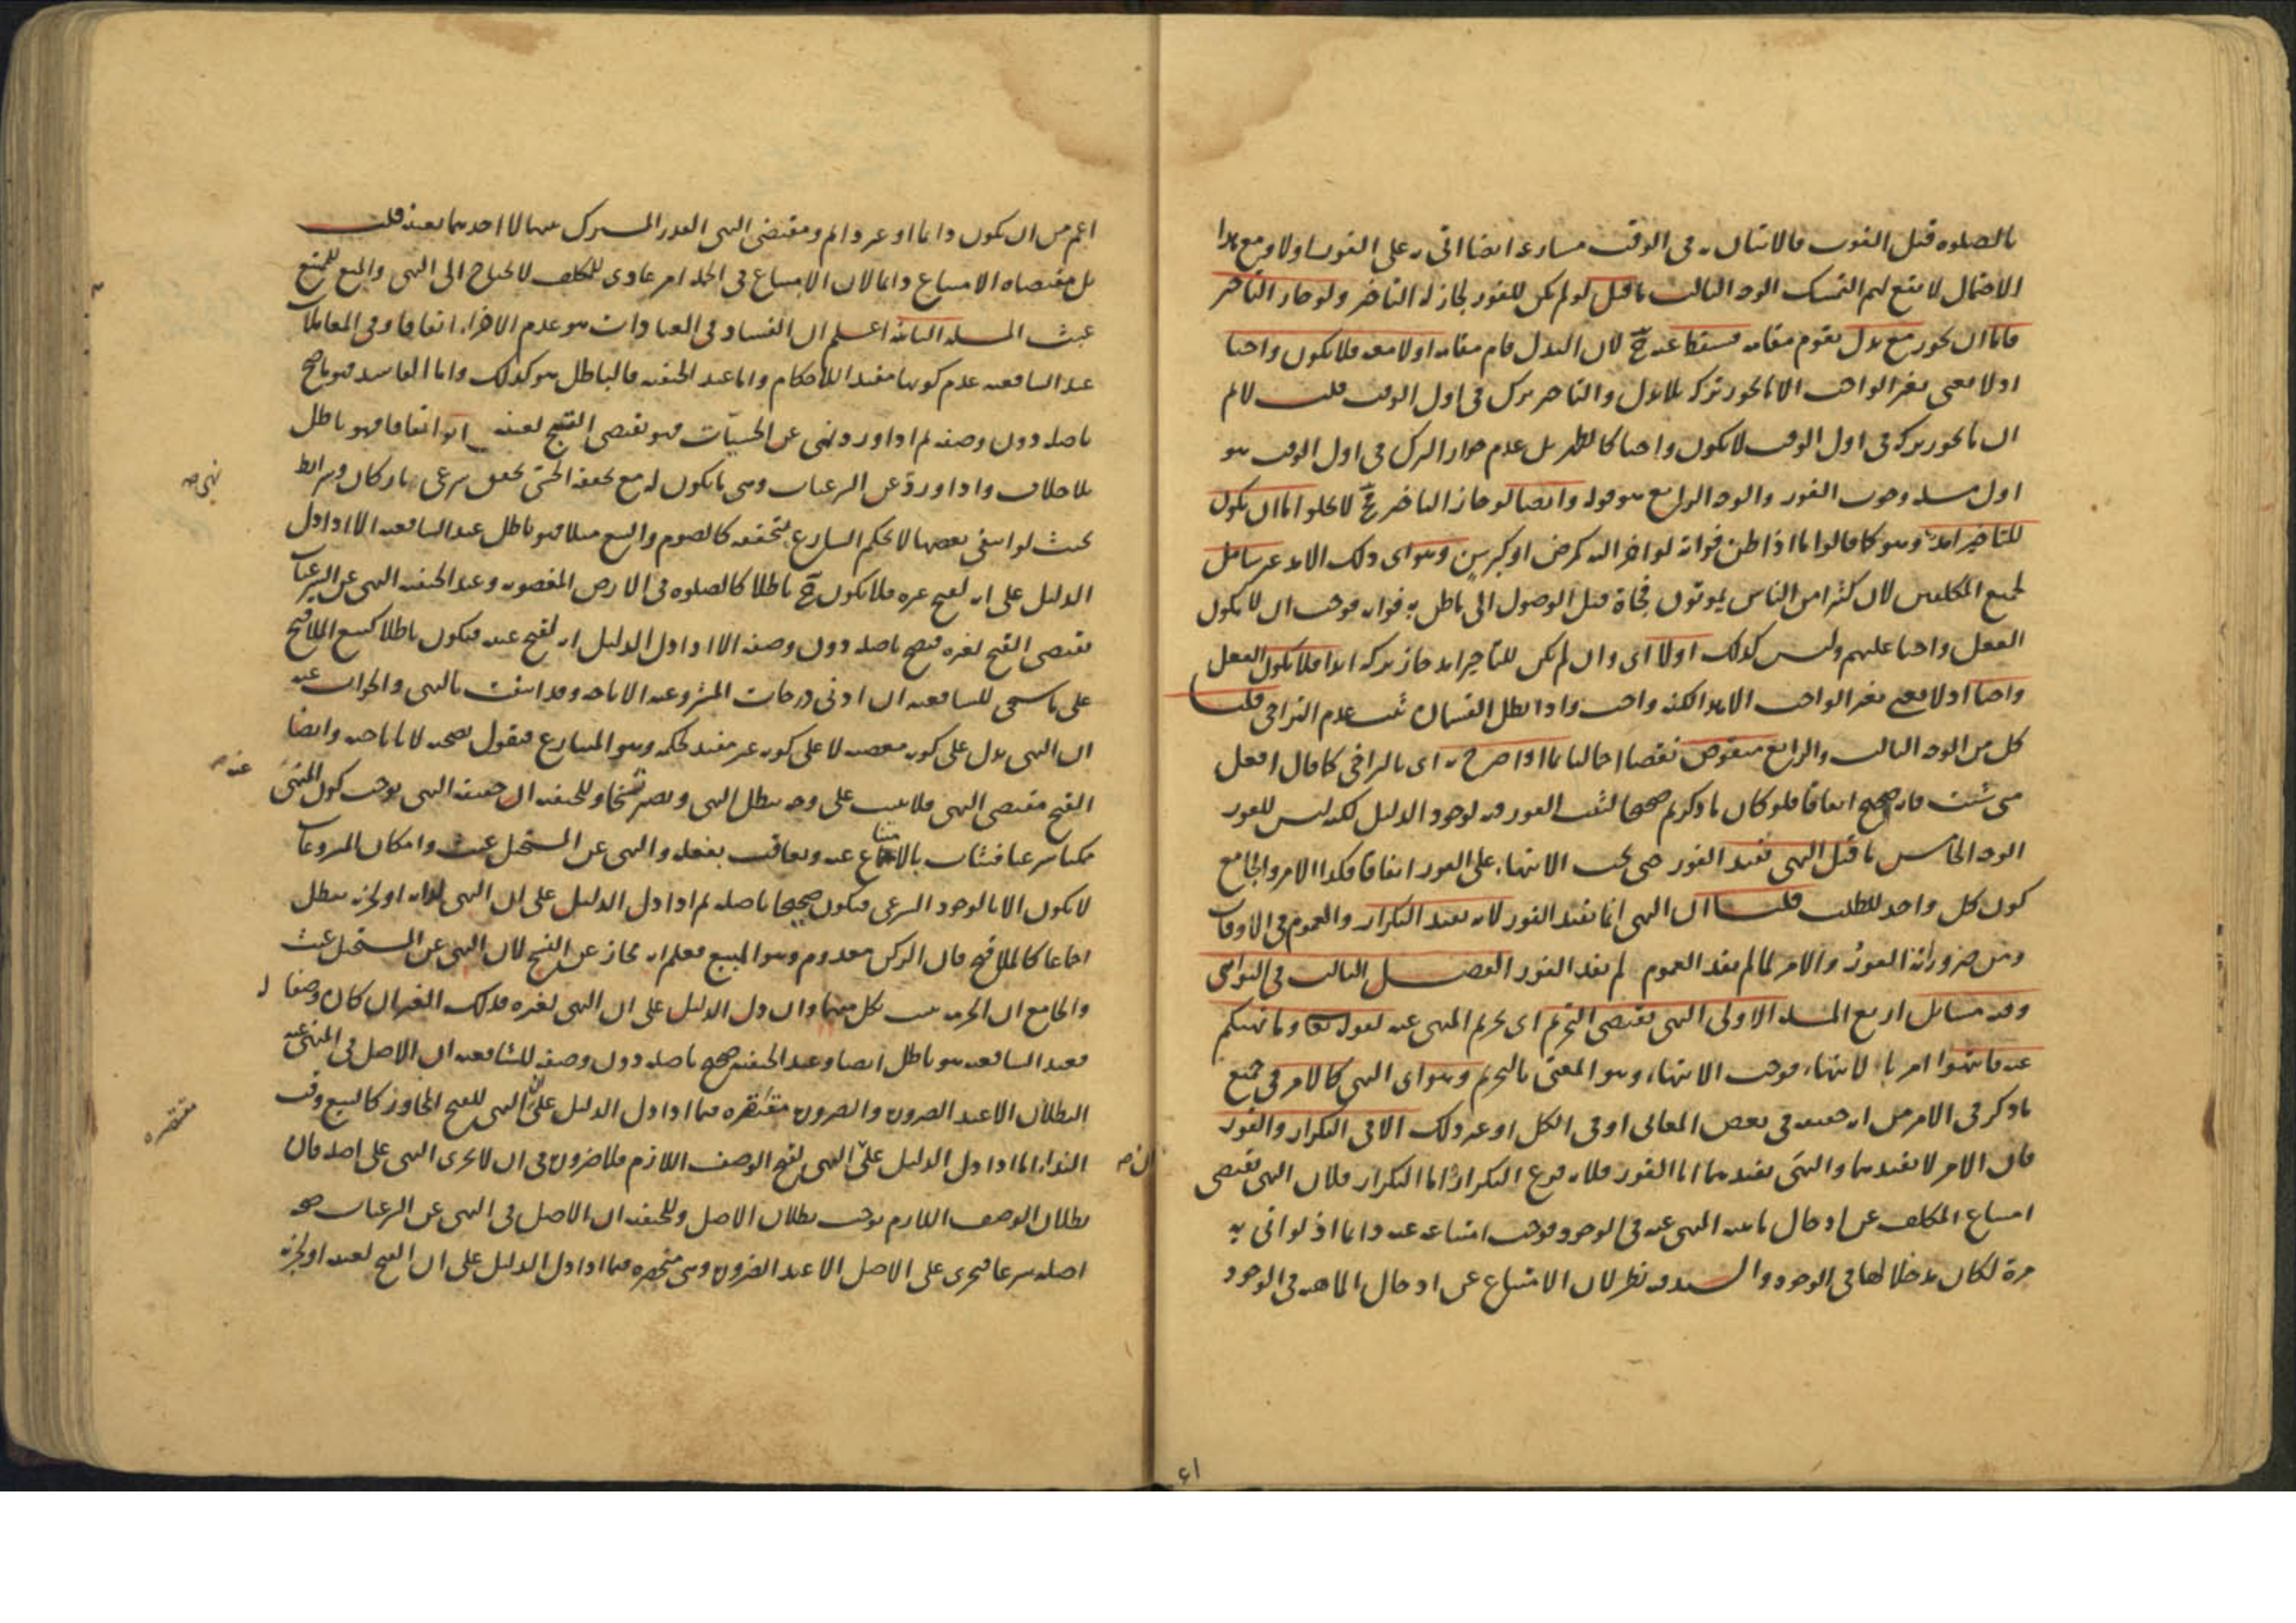 بالصلوه قبل الفوت فالاتيان به فى الوقت مسارعة ايضا اتى به على الفور اولا ومع هذا
الاحتمال لا يتم لهم التمسك الوجه الثالث ما قيل لو لم يكن للفور لجاز له التاخير ولو جاز التاخير
فاما ان يجوز مع بدل يقوم مقامه فيسقط عنه ح لان البدل قام مقامه اولا معه فلا يكون واجبا
اذ لا يعنى بغير الواجب الا ما يجوز تركه بلا بدل والتاخير ترك فى اول الوقت قلت لا نم
ان ما يجوز تركه فى اول الوقت لا يكون واجبا كالظهر بل عدم جواز الترك فى اول الوقت هو
اول مسئله وجوب الفور والوجه الرابع هو قوله وايضا لو جاز التاخير ح لا يخلو اما ان يكون
للتاخير امد وهو كما قالوا ما اذا ظن فواته لو اخر اليه كمرض او كبر سن وهو اى ذلك الامد غير شامل
لجميع المكلفين لان كثيرا من الناس يموتون فجاة قبل الوصول الى ما ظن به فواته فوجب ان لا يكون
الفعل واجبا عليهم وليس كذلك اولا اى وان لم يكن للتاخير امد جاز تركه ابدا فلا يكون الفعل
واجبا اذ لا نعنى بغير الواجب الا هذا لكنه واجب واذا بطل القسمان ثبت عدم التراخى قلت
كل من الوجه الثالث والرابع منقوض نقضا اجماليا بما اذا صرح به اى بالتراخى كما قال افعل
متى شئت فانه صحيح اتفاقا فلو كان ما ذكرتم صحيحا لثبت الفور فيه لوجود الدليل لكنه ليس للفور
الوجه الخامس ما قيل النهى يفيد الفور حتى يجب الانتهاء على الفور اتفاقا فكذا الامر والجامع
كون كل واحد للطلب قلت ان النهى انما يفيد الفور لانه يفيد التكرار والعموم فى الاوقات
ومن ضروراته الفور والامر لما لم يفد العموم لم يفد الفور الفصل الثالث فى النواهى
وفيه مسائل اربع المسئله الاولى النهى يقتضى التحريم اى تحريم المنهى عنه لقوله تعا وما نهيكم
عنه فانتهوا امر بالانتهاء فوجب الانتهاء وهو المعنى بالتحريم وهو اى النهى كالامر فى جميع
ما ذكر فى الامر من انه حقيقه فى بعض المعانى او فى الكل او غير ذلك الا فى التكرار والفور
فان الامر لا يفيدهما والنهى يفيدهما اما الفور فلانه فرع التكرار اما التكرار فلان النهى يقتضى
امتناع المكلف عن ادخال ماهية المنهى عنه فى الوجود فوجب امتناعه عنه دائما اذ لو اتى به
مرة لكان مدخلا لها فى الوجود و فيه نظر لان الامتناع عن ادخال الماهيه فى الوجود
۶۱
اعم من ان يكون دائما او غير دائم ومقتضى النهى القدر المشترك بينهما لا احدهما بعينه قلت
بل مقتضاه الامتناع دائما لان الامتناع فى الجمله امر عادى للمكلف لا يحتاج الى النهى والمنع للممتنع
عبث المسئله الثانيه اعلم ان الفساد فى العبادات هو عدم الاجزاء اتفاقا وفى المعاملات
عند الشافعيه عدم كونها مفيدا للاحكام واما عند الحنفيه فالباطل هو كذلك واما الفاسد فهو ما صح
باصله دون وصفه ثم اذا ورد نهى عن الحسيات فهو يقتضى القبح لعينه اتفاقا فهو باطل
بلا خلاف واذا ورد عن الشرعيات وهى ما يكون له مع تحققه الحسى تحقق شرعى باركان وشرائط
بحيث لو انتفى بعضها لا يحكم الشارع بتحققه كالصوم والبيع مثلا فهو باطل عند الشافعيه الا اذا دل
الدليل على انه لقبح غيره فلا يكون ح باطلا كالصلوه فى الارض المغصوبه وعند الحنفيه النهى عن الشرعيات
يقتضى القبح لغيره فيصح باصله دون وصفه الا اذا دل الدليل انه لقبح عينه فيكون باطلا كبيع الملاقيح
على ما سيجى للشافعيه ان ادنى درجات المشروعيه الاباحه وقد انتفت بالنهى والجواب عنه
ان النهى يدل على كونه معصيه لا على كونه غير مفيد لحكمه وهو المتنازع فنقول بصحته لا باباحته وايضا
القبح مقتضى النهى فلا يثبت على وجه يبطل النهى ويصير نسخا وللحنفيه ان حقيقه النهى يوجب كون المنهى
ممكنا شرعا فيثاب بالامتناع عنه ويعاقب بفعله والنهى عن المستحيل عبث وامكان المشروعات
لا يكون الا بالوجود الشرعى فيكون صحيحا باصله ثم اذا دل الدليل على ان النهى لذاته او لجزئه يبطل
اجماعا كالملاقيح فان الركن معدوم وهو المبيع فعلم انه مجاز عن النسخ لان النهى عن المستحيل عبث
والجامع ان الحرمه يثبت بكل منهما وان دل الدليل على ان النهى لغيره فذلك الغير ان كان وصفا ل
فعند الشافعيه هو باطل ايضا وعند الحنفيه صحيح باصله دون وصفه للشافعيه ان الاصل فى المنهى عنه
البطلان الا عند الضروره والضروره مقتصره فيما اذا دل الدليل على ان النهى للقبح المجاور كالبيع وقت
النداء اما اذا دل الدليل على ان النهى لقبح الوصف اللازم فلا ضروره فى ان لا يجرى النهى على اصله فان
بطلان الوصف اللازم يوجب بطلان الاصل وللحنفيه ان الاصل فى النهى عن الشرعيات صحه
اصله شرعا فيجرى على الاصل الا عند الضروره وهى منحصره فيما اذا دل الدليل على ان القبح لعينه او لجزئه
نهى صح
عنه صح
مقتصره